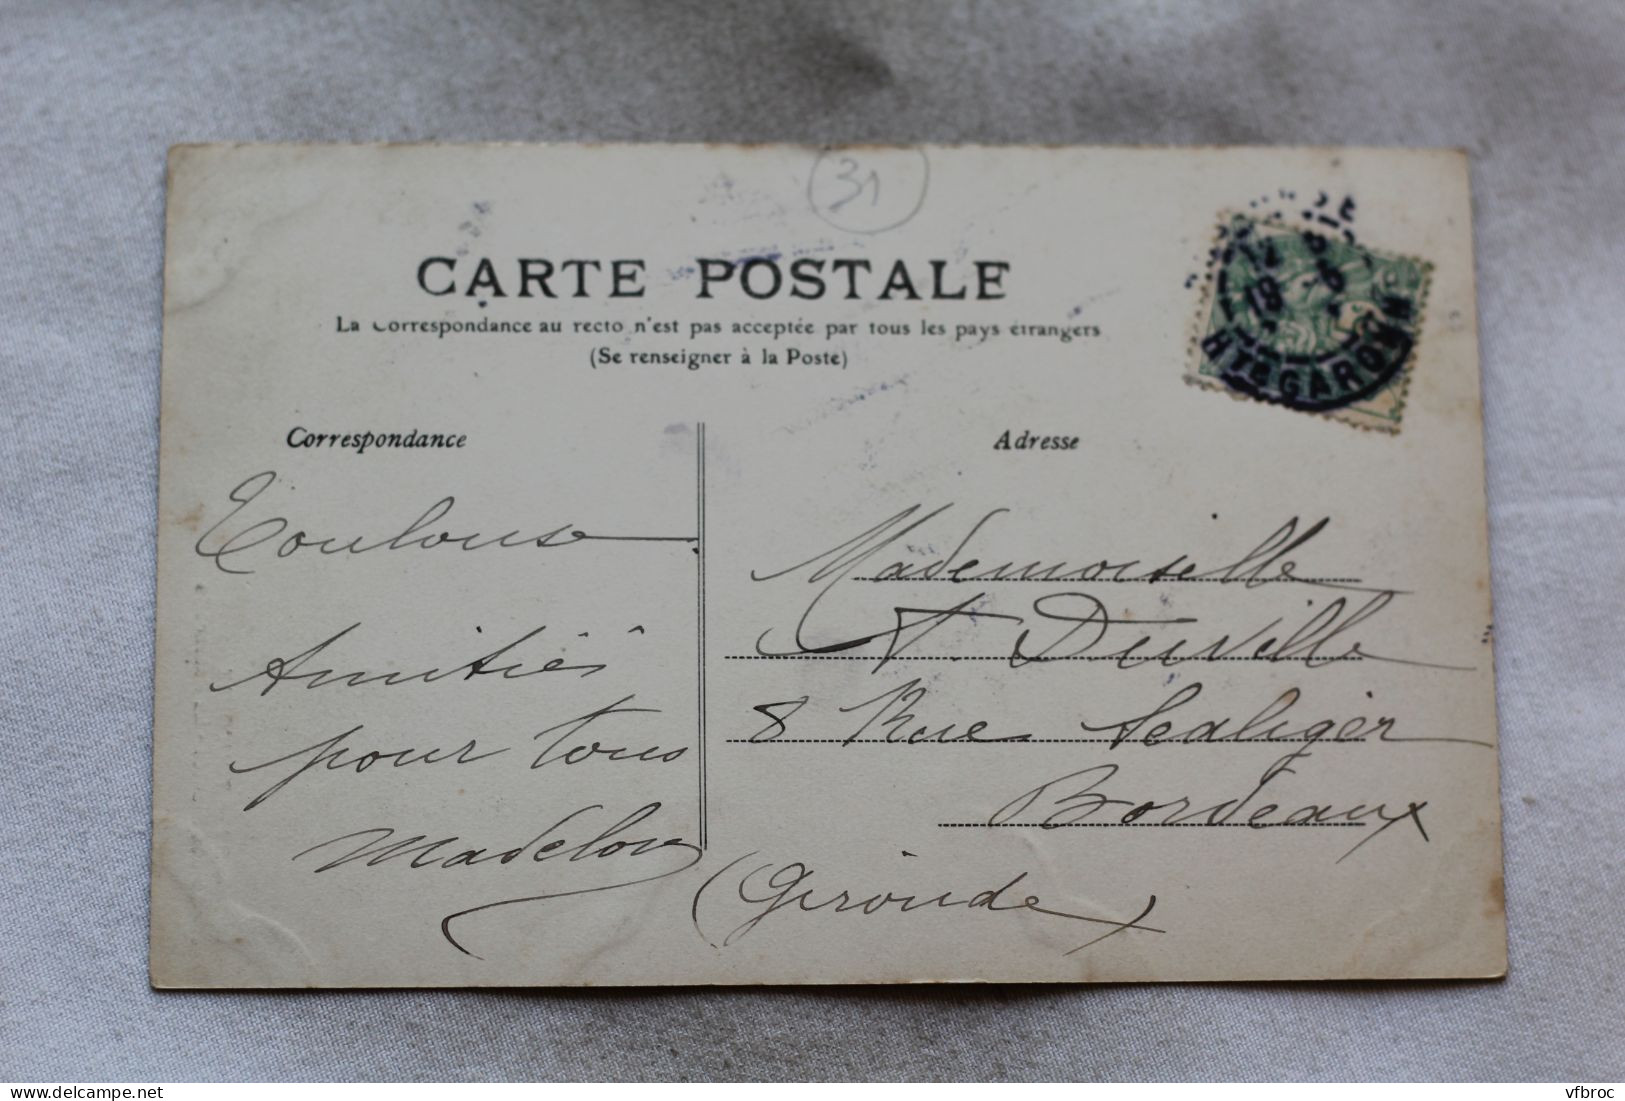 31
CARTE POSTALE
La Correspondance au recto n'est pas acceptée par tous les pays étrangers
(Se renseigner à la Poste)
Correspondance
Adresse
HTE GARONNE
Toulouse
Amitiés
pour tous
Madelon
Mademoiselle
Duville
8 Rue Scaliger
Bordeaux
(Gironde)
delcampe.net
vfbroc